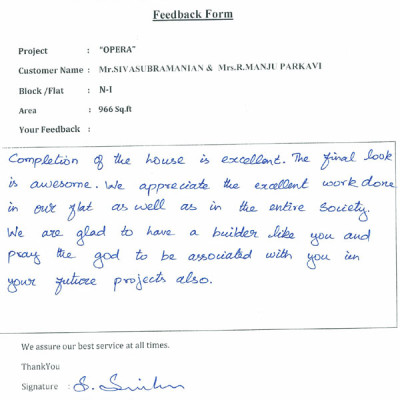 Feedback Form
Project : "OPERA"
Customer Name : Mr.SIVASUBRAMANIAN & Mrs.R.MANJU PARKAVI
Block /Flat : N-I
Area : 966 Sq.ft
Your Feedback :
Completion of the house is excellent. The final look
is awesome. We appreciate the excellent work done
in our flat as well as in the entire Society.
We are glad to have a builder like you and
pray the god to be associated with you in
your future projects also.
We assure our best service at all times.
ThankYou
Signature :